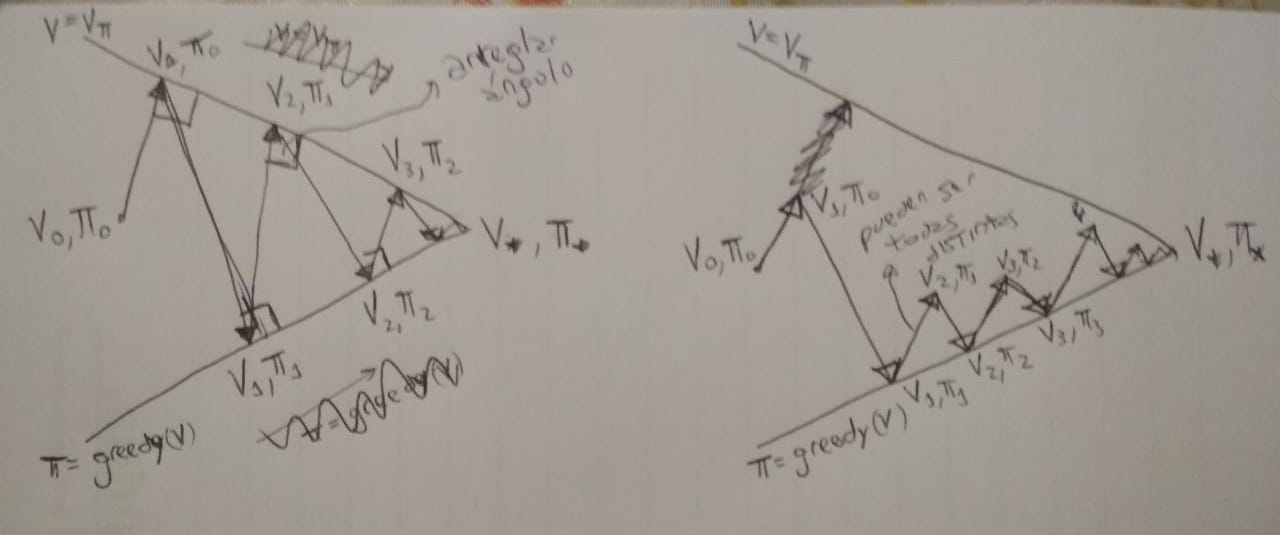 V=Vπ
V₁,π₀
V₂,π₁
arreglar
ángulo
V₃,π₂
V₀,π₀
V*,π*
V₂,π₂
V₁,π₁
π=greedy(V)
V=Vπ
V₁,π₀
pueden ser
todos
distintos
V₀,π₀
V₂,π₁
V₃,π₂
V*,π*
V₃,π₃
V₂,π₂
V₁,π₁
π=greedy(V)